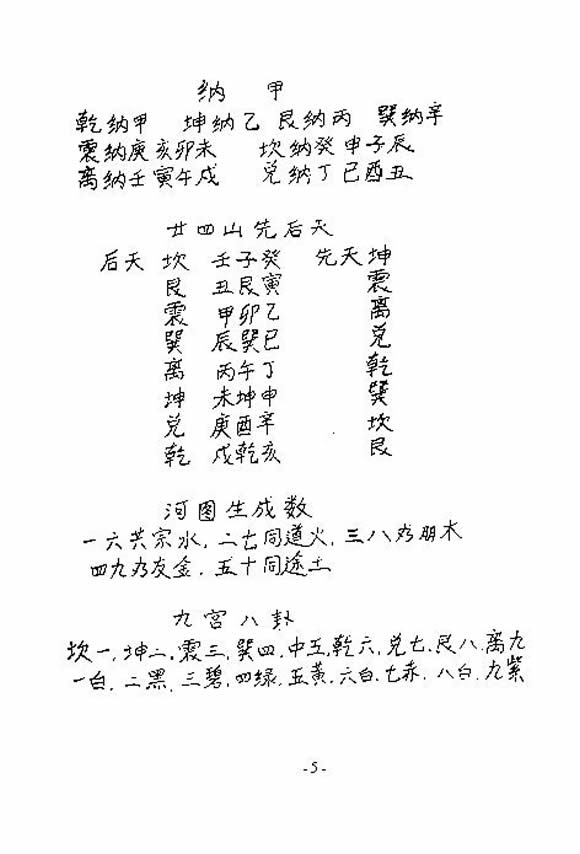 纳 甲
乾纳甲 坤纳乙 艮纳丙 巽纳辛
震纳庚亥卯未 坎纳癸申子辰
离纳壬寅午戌 兑纳丁巳酉丑
廿四山先后天
后天 坎 壬子癸 先天 坤
艮 丑艮寅 震
震 甲卯乙 离
巽 辰巽巳 兑
离 丙午丁 乾
坤 未坤申 巽
兑 庚酉辛 坎
乾 戌乾亥 艮
河图生成数
一六共宗水，二七同道火，三八为朋木
四九为友金．五十同途土
九宫八卦
坎一．坤二．震三．巽四．中五．乾六．兑七．艮八．离九
一白．二黑．三碧．四绿．五黄．六白．七赤．八白．九紫
-5-